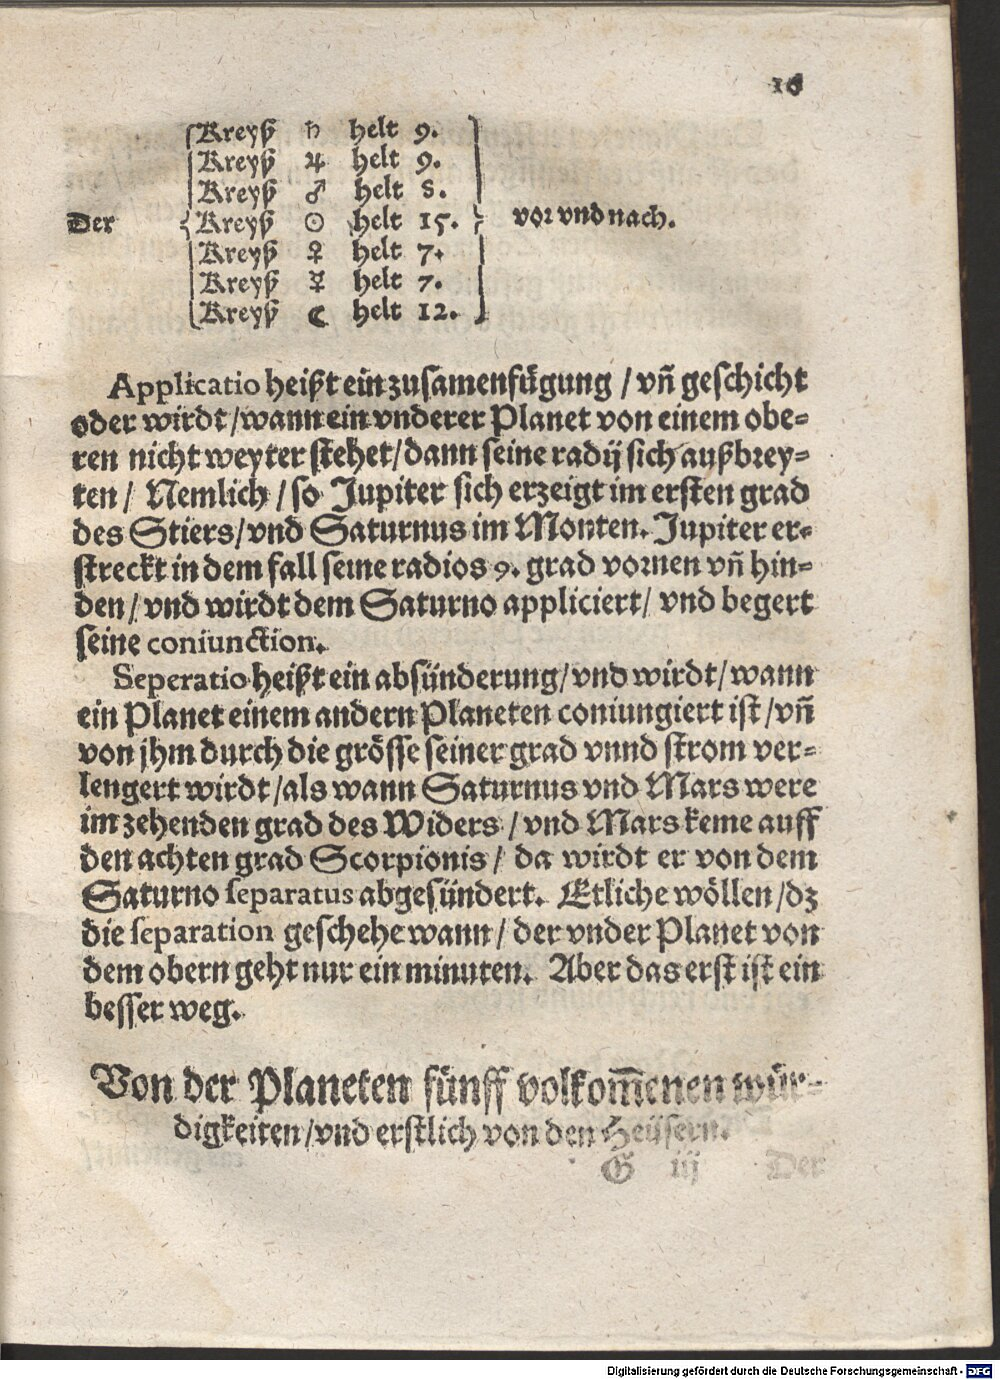 16
Kreyß ♄ helt 9.
Kreyß ♃ helt 9.
Kreyß ♂ helt 8.
Der { Kreyß ☉ helt 15. } vor vnd nach.
Kreyß ♀ helt 7.
Kreyß ☿ helt 7.
Kreyß ☾ helt 12.
Applicatio heißt ein zusamenfügung / vñ geschicht
oder wirdt / wann ein vnderer Planet von einem obe=
ren nicht weyter stehet / dann seine radij sich außbrey=
ten / Nemlich / so Jupiter sich erzeigt im ersten grad
des Stiers / vnd Saturnus im Monten. Jupiter er=
streckt in dem fall seine radios 9. grad vornen vñ hin=
den / vnd wirdt dem Saturno appliciert / vnd begert
seine coniunction.
Seperatio heißt ein absünderung / vnd wirdt / wann
ein Planet einem andern Planeten coniungiert ist / vñ
von jhm durch die grösse seiner grad vnnd strom ver=
lengert wirdt / als wann Saturnus vnd Mars were
im zehenden grad des Widers / vnd Mars keme auff
den achten grad Scorpionis / da wirdt er von dem
Saturno separatus abgesündert. Etliche wöllen / dz
die separation geschehe wann / der vnder Planet von
dem obern geht nur ein minuten. Aber das erst ist ein
besser weg.
Von der Planeten fünff volkom̃enen wür=
digkeiten / vnd erstlich von den Heüsern.
G iij Der
Digitalisierung gefördert durch die Deutsche Forschungsgemeinschaft - DFG